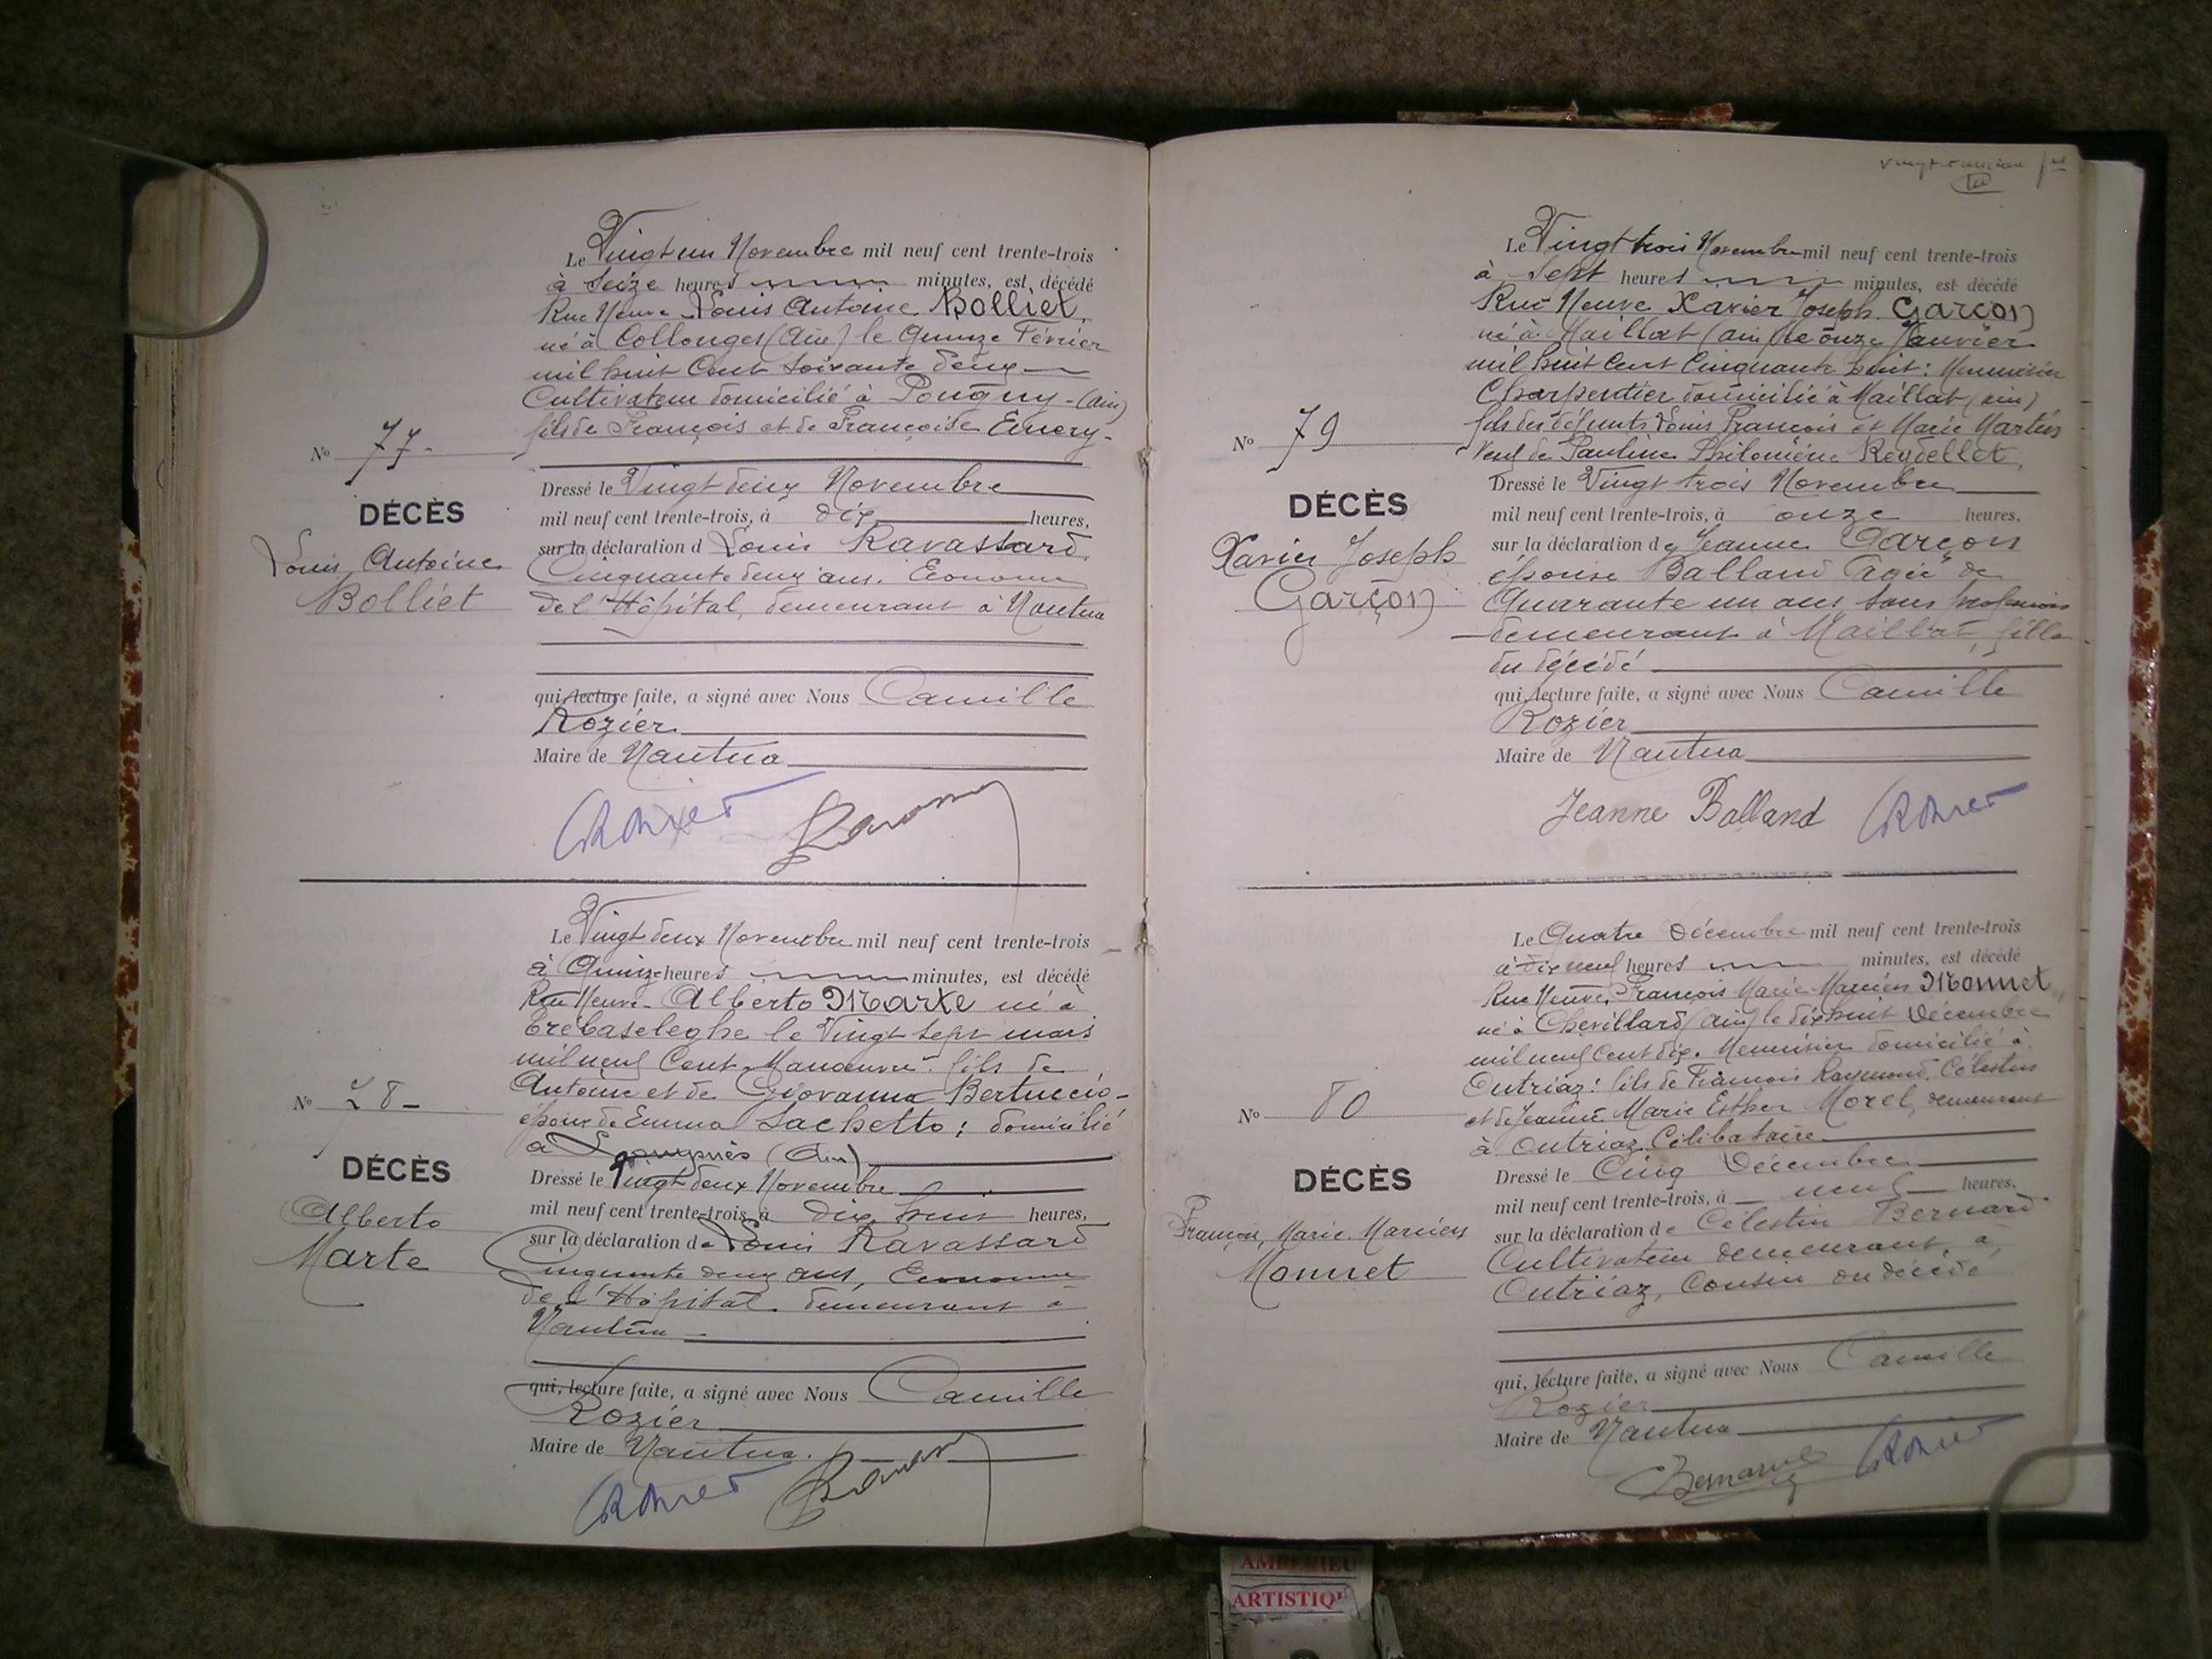 Le Vingt un Novembre mil neuf cent trente-trois
à Seize heures minutes, est décédé
Rue Neuve Louis Antoine Bolliet,
né à Collonges (Ain) le Quinze Février
mil huit Cent Soixante deux
Cultivateur domicilié à Pougny - (Ain)
fils de François et de Françoise Emery -
No 77 -
DÉCÈS
Louis Antoine
Bolliet
Dressé le Vingt deux Novembre
mil neuf cent trente-trois, à dix heures,
sur la déclaration d Louis Ravassard,
Cinquante deux ans, Econome
de l'Hôpital, demeurant à Nantua
qui, lecture faite, a signé avec Nous Camille
Rozier
Maire de Nantua
Le Vingt deux Novembre mil neuf cent trente-trois
à Quinze heures minutes, est décédé
Rue Neuve - Alberto Marte né à
Trebaseleghe le Vingt Sept mars
mil neuf Cent. Manœuvre. fils de
Antoine et de Giovanna Bertuccio -
époux de Emma Sachetto ; domicilié
à (Ain)
No 78 -
DÉCÈS
Alberto
Marte
Dressé le Vingt deux Novembre
mil neuf cent trente-trois, à dix huit heures,
sur la déclaration de Louis Ravassard
Cinquante deux ans, Econome
de l'Hôpital. demeurant à
Nantua -
qui, lecture faite, a signé avec Nous Camille
Rozier
Maire de Nantua.
Le Vingt trois Novembre mil neuf cent trente-trois
à Sept heures minutes, est décédé
Rue Neuve Xavier Joseph Garçon
né à Maillat (ain) le onze Janvier
mil huit Cent Cinquante huit : Menuisier
Charpentier domicilié à Maillat (ain)
fils des défunts Louis François et Marie Martin
Veuf de Pauline Philomène Reydellet,
No 79
DÉCÈS
Xavier Joseph
Garçon
Dressé le Vingt trois Novembre
mil neuf cent trente-trois, à onze heures,
sur la déclaration de Jeanne Garçon
épouse Balland âgée de
Quarante un ans, sans profession
demeurant à Maillat, fille
du décédé
qui, lecture faite, a signé avec Nous Camille
Rozier
Maire de Nantua
Jeanne Balland
Le Quatre Décembre mil neuf cent trente-trois
à dix neuf heures minutes, est décédé
Rue Neuve, François Marie Marcien Monnet,
né à Chevillard (ain) le dix huit Décembre
mil neuf Cent dix. Menuisier domicilié à
Outriaz : fils de François Raymond Célestin
et de Jeanne Marie Esther Morel, demeurant
à Outriaz. Célibataire
No 80
DÉCÈS
François, Marie, Marcien
Monnet
Dressé le Cinq Décembre
mil neuf cent trente-trois, à neuf heures,
sur la déclaration de Célestin Bernard
Cultivateur demeurant à
Outriaz, Cousin du décédé
qui, lecture faite, a signé avec Nous Camille
Rozier
Maire de Nantua
Bernard
ARTISTIQU